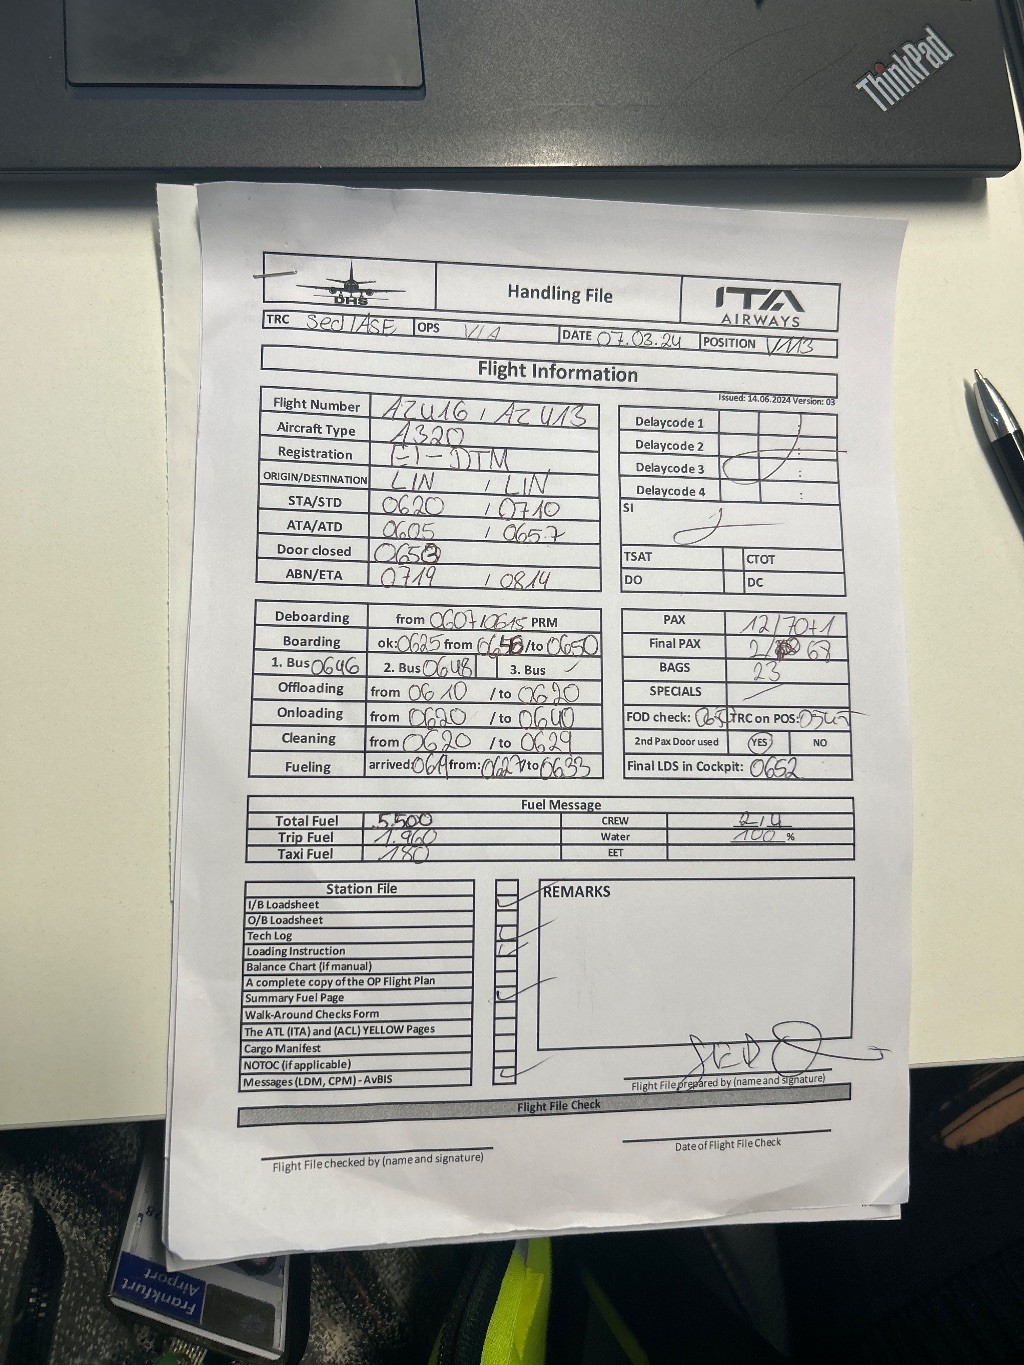 ThinkPad
DHS
Handling File
ITA
AIRWAYS
TRC OPS DATE 07.03.24 POSITION V113
Flight Information
Issued: 14.06.2024 Version: 03
Flight Number AZ416 / AZ413
Aircraft Type A320
Registration EI-DTM
ORIGIN/DESTINATION LIN / LIN
STA/STD 0620 / 0710
ATA/ATD 0605 / 0657
Door closed
ABN/ETA 0719 / 0814
Delaycode 1
Delaycode 2
Delaycode 3 :
Delaycode 4 :
SI
TSAT CTOT
DO DC
Deboarding from 0607/0615 PRM
Boarding ok: 0625 from /to 0650
1. Bus 0646 2. Bus 0648 3. Bus
Offloading from 0610 /to 0620
Onloading from 0620 /to 0640
Cleaning from 0620 /to 0629
Fueling arrived: from: 0627 /to 0633
PAX 12/70+1
Final PAX 2/ 68
BAGS 23
SPECIALS
FOD check: TRC on POS: 0545
2nd Pax Door used YES NO
Final LDS in Cockpit: 0652
Fuel Message
Total Fuel 5.500 CREW 2/4
Trip Fuel 1.960 Water 100 %
Taxi Fuel 180 EET
Station File
I/B Loadsheet
O/B Loadsheet
Tech Log
Loading Instruction
Balance Chart (if manual)
A complete copy of the OP Flight Plan
Summary Fuel Page
Walk-Around Checks Form
The ATL (ITA) and (ACL) YELLOW Pages
Cargo Manifest
NOTOC (if applicable)
Messages (LDM, CPM) - AvBIS
REMARKS
Flight File prepared by (name and signature)
Flight File Check
Flight File checked by (name and signature)
Date of Flight File Check
Frankfurt
Airport